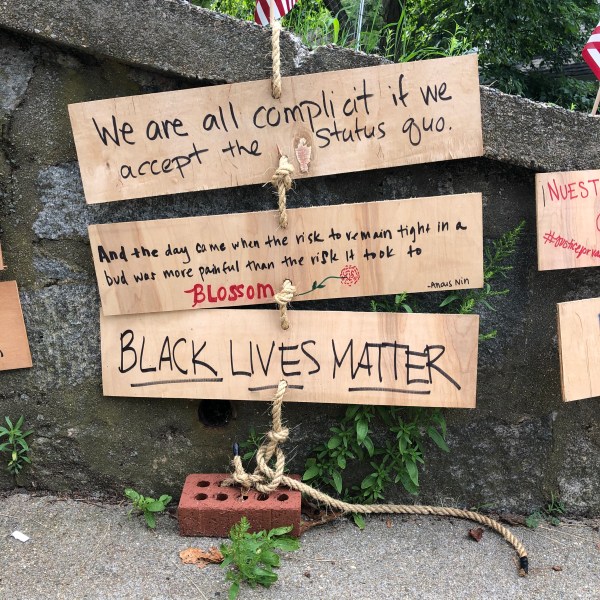 We are all complicit if we
accept the status quo.
And the day came when the risk to remain tight in a
bud was more painful than the risk it took to
BLOSSOM
-Anaus Nin
BLACK LIVES MATTER
¡NUEST